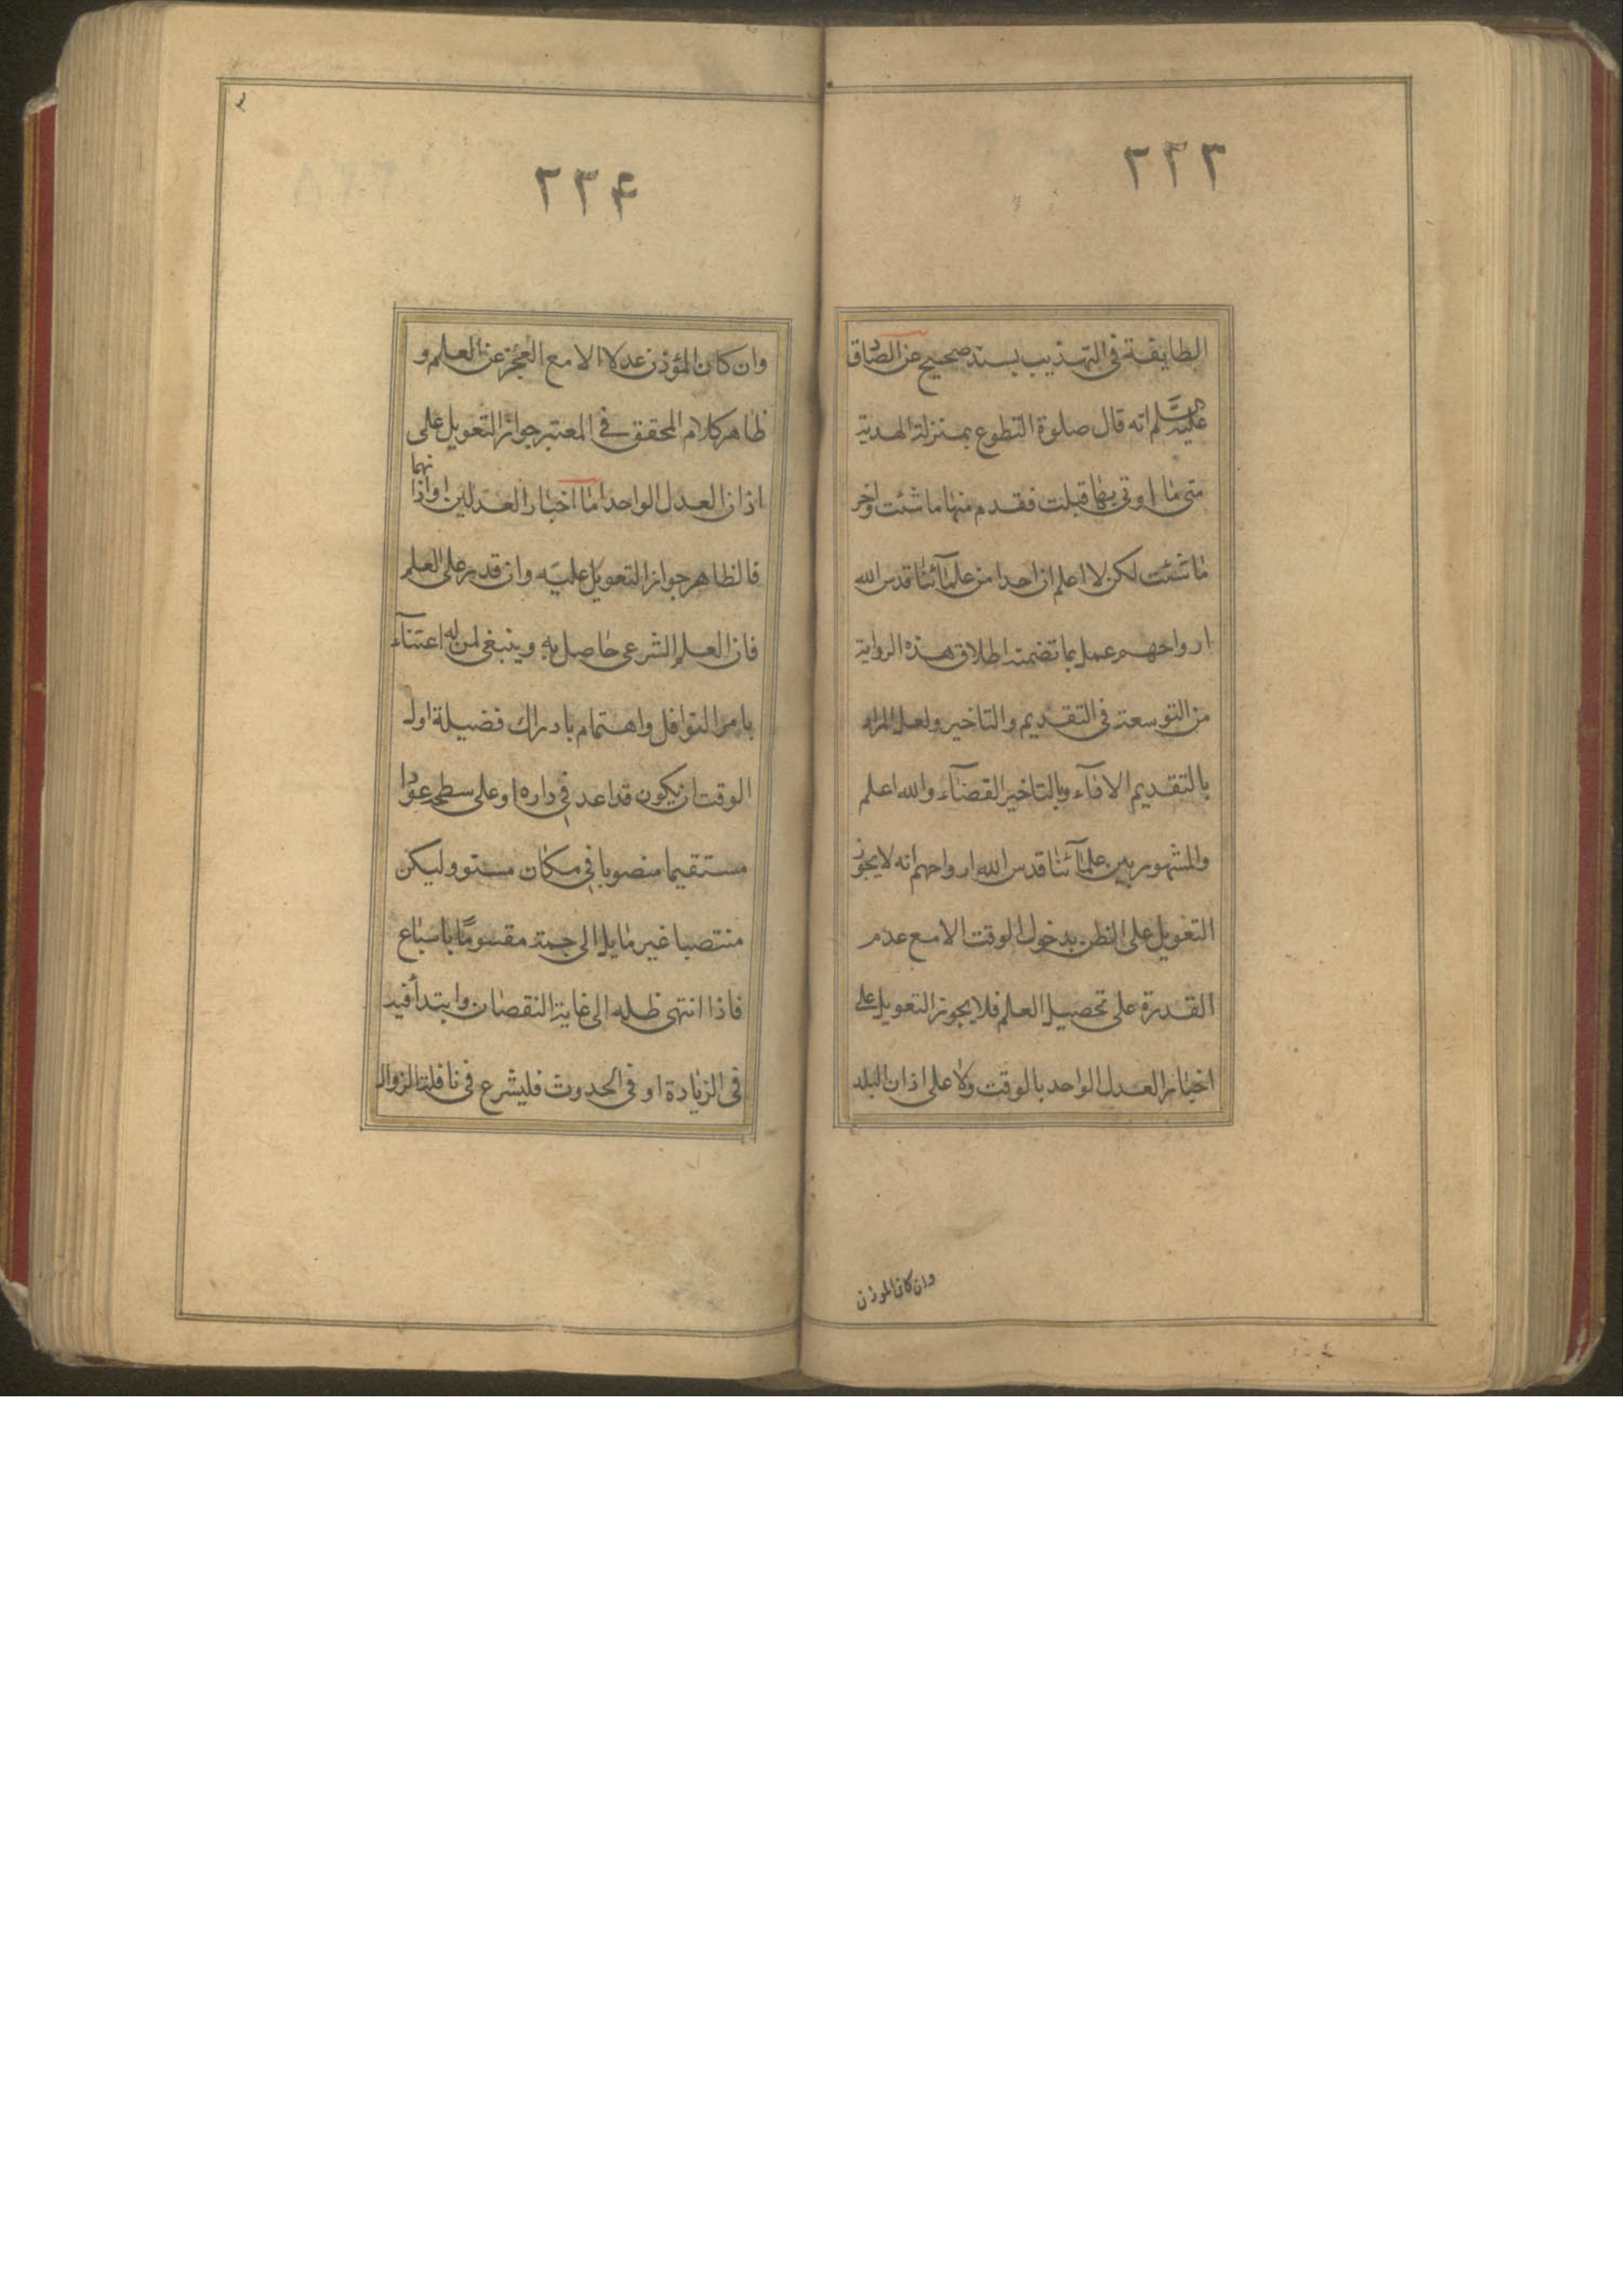 ٢٢٣
الطايفة فى التهذيب بسند صحيح عن الصادق
عليه السلم انه قال صلوة التطوع بمنزلة الهدية
متى ما اوتى بها قبلت فقدم منها ما شئت واخر
ما شئت لكن لا اعلم ان احدا من علمآئنا قدس الله
ارواحهم عمل بما تضمنه اطلاق هذه الرواية
من التوسعة فى التقديم والتاخير ولعل المراد
بالتقديم الادآء وبالتاخير القضآء والله اعلم
والمشهور بين علمآئنا قدس الله ارواحهم انه لا يجوز
التعويل على الظن بدخول الوقت الا مع عدم
القدرة على تحصيل العلم فلا يجوز التعويل على
اخبار العدل الواحد بالوقت ولا على اذان البلد
وان كان الموذن
٢٢٤
وان كان المؤذن عدلا الا مع العجز عن العلم و
ظاهر كلام المحقق فى المعتبر جواز التعويل على
اذان العدل الواحد اما اخبار العدلين او اذانهما
فالظاهر جواز التعويل عليه وان قدر على العلم
فان العلم الشرعى حاصل به وينبغى لمن له اعتنآء
بامر النوافل واهتمام بادراك فضيلة اول
الوقت ان يكون قد اعد فى داره او على سطحه عودا
مستقيما منصوبا فى مكان مستو وليكن
منتصبا غير مايل الى جهة مقسومًا باسباع
فاذا انتهى ظله الى غاية النقصان وابتدأ فيه
فى الزيادة او فى الحدوث فليشرع فى نافلة الزوال